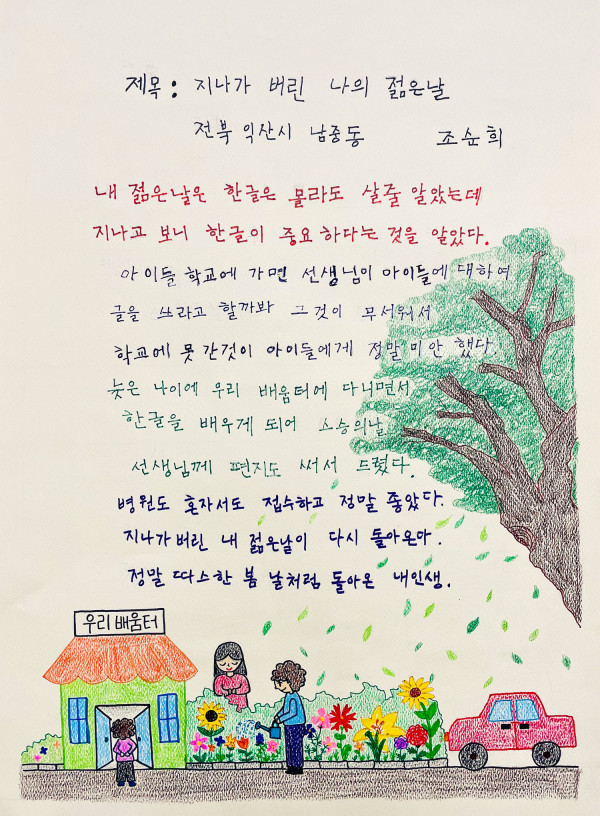 제목: 지나가 버린 나의 젊은날
전북 익산시 남중동 조순희
내 젊은날은 한글은 몰라도 살줄 알았는데
지나고 보니 한글이 중요하다는 것을 알았다.
아이들 학교에 가면 선생님이 아이들에 대하여
글을 쓰라고 할까봐 그것이 무서워서
학교에 못간것이 아이들에게 정말 미안 했다.
늦은 나이에 우리 배움터에 다니면서
한글을 배우게 되어 스승의날
선생님께 편지도 써서 드렸다.
병원도 혼자서도 접수하고 정말 좋았다.
지나가버린 내 젊은날이 다시 돌아온다.
정말 따스한 봄 날처럼 돌아온 내인생.
우리 배움터